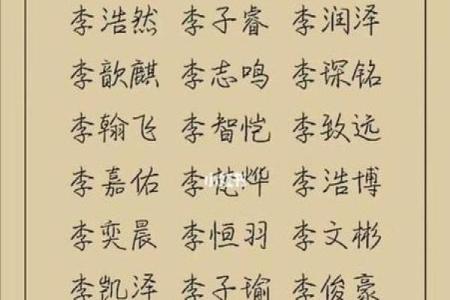 李浩然 李子睿 李润泽
李歆麒 李志鸣 李琛铭
李翰飞 李智恺 李致远
李嘉佑 李梵烨 李浩博
小红书
李奕晨 李恒羽 李文彬
李凯泽 李子瑜 李俊豪